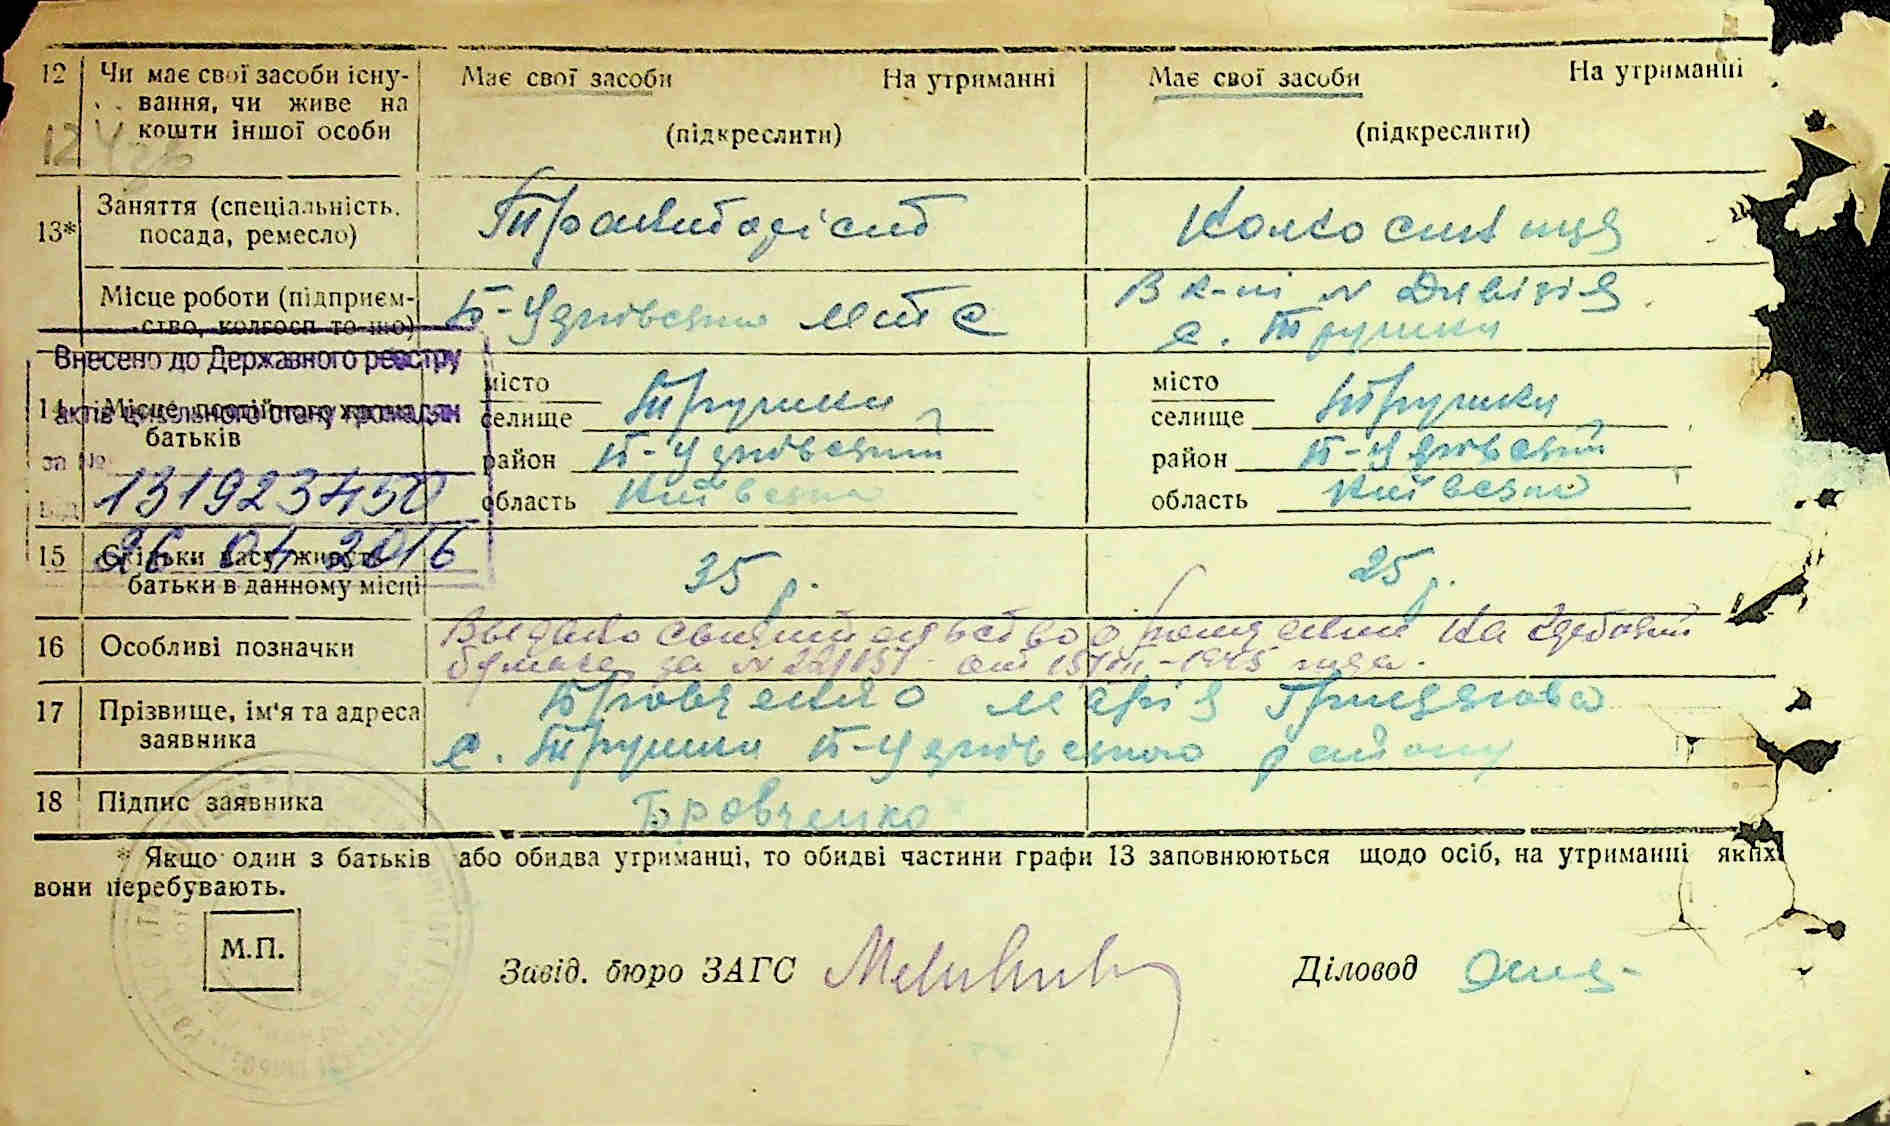 12 Чи має свої засоби існу- Має свої засоби На утриманні Має свої засоби На утриманні
вання, чи живе на
кошти іншої особи (підкреслити) (підкреслити)
12
13* Заняття (спеціальність, Колхосниця
посада, ремесло)
Місце роботи (підприєм- Б-Церківська МТС В к-пі
ство, колгосп то-що) с. Трушки
Внесено до Державного реєстру
актів цивільного стану громадян
за № 131923450
від 26 04 2016
14 Місце постійного
батьків
місто місто
селище Трушки селище Трушки
район Б-Церківський район Б-Церківський
область Київська область Київська
15 Скільки часу живуть 35 р. 25 р.
батьки в данному місці
16 Особливі позначки Выдано свидительство о рождении на
бумаге за № от 1945 года.
17 Прізвище, ім'я та адреса Бровченко Марія
заявника с. Трушки Б-Церківського району
18 Підпис заявника Бровченко
* Якщо один з батьків або обидва утриманці, то обидві частини графи 13 заповнюються щодо осіб, на утриманні яких
вони перебувають.
М.П.
Завід. бюро ЗАГС Діловод